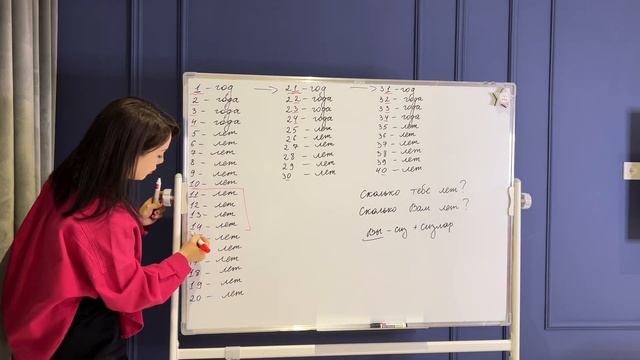 1 - год
2 - года
3 - года
4 - года
5 - лет
6 - лет
7 - лет
8 - лет
9 - лет
10 - лет
11 - лет
12 - лет
13 - лет
14 - лет
лет
лет
лет
18 - лет
19 - лет
20 - лет
21 - год
22 - года
23 - года
24 - года
25 - лет
26 - лет
27 - лет
28 - лет
29 - лет
30
31 - год
32 - года
33 - года
34 - года
35 - лет
36 - лет
37 - лет
38 - лет
39 - лет
40 - лет
Сколько тебе лет?
Сколько Вам лет?
Вы - сиз + сизлар